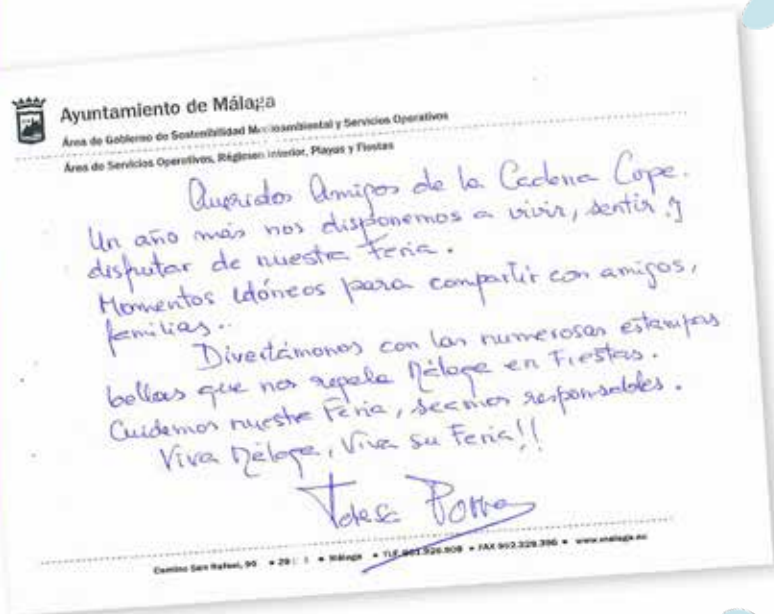 Ayuntamiento de Málaga
Área de Gobierno de Sostenibilidad Medioambiental y Servicios Operativos
Área de Servicios Operativos, Régimen Interior, Playas y Fiestas
Queridos Amigos de la Cadena Cope.
Un año más nos disponemos a vivir, sentir y
disfrutar de nuestra Feria.
Momentos idóneos para compartir con amigos,
familias..
Divertámonos con las numerosas estampas
bellas que nos regala Málaga en Fiestas.
Cuidemos nuestra Feria, seamos responsables.
Viva Málaga, Viva su Feria!!
Teresa Porras
Camino San Rafael, 99 • 29 • Málaga • TLF. 951.926.908 • FAX 952.329.396 • www.malaga.eu